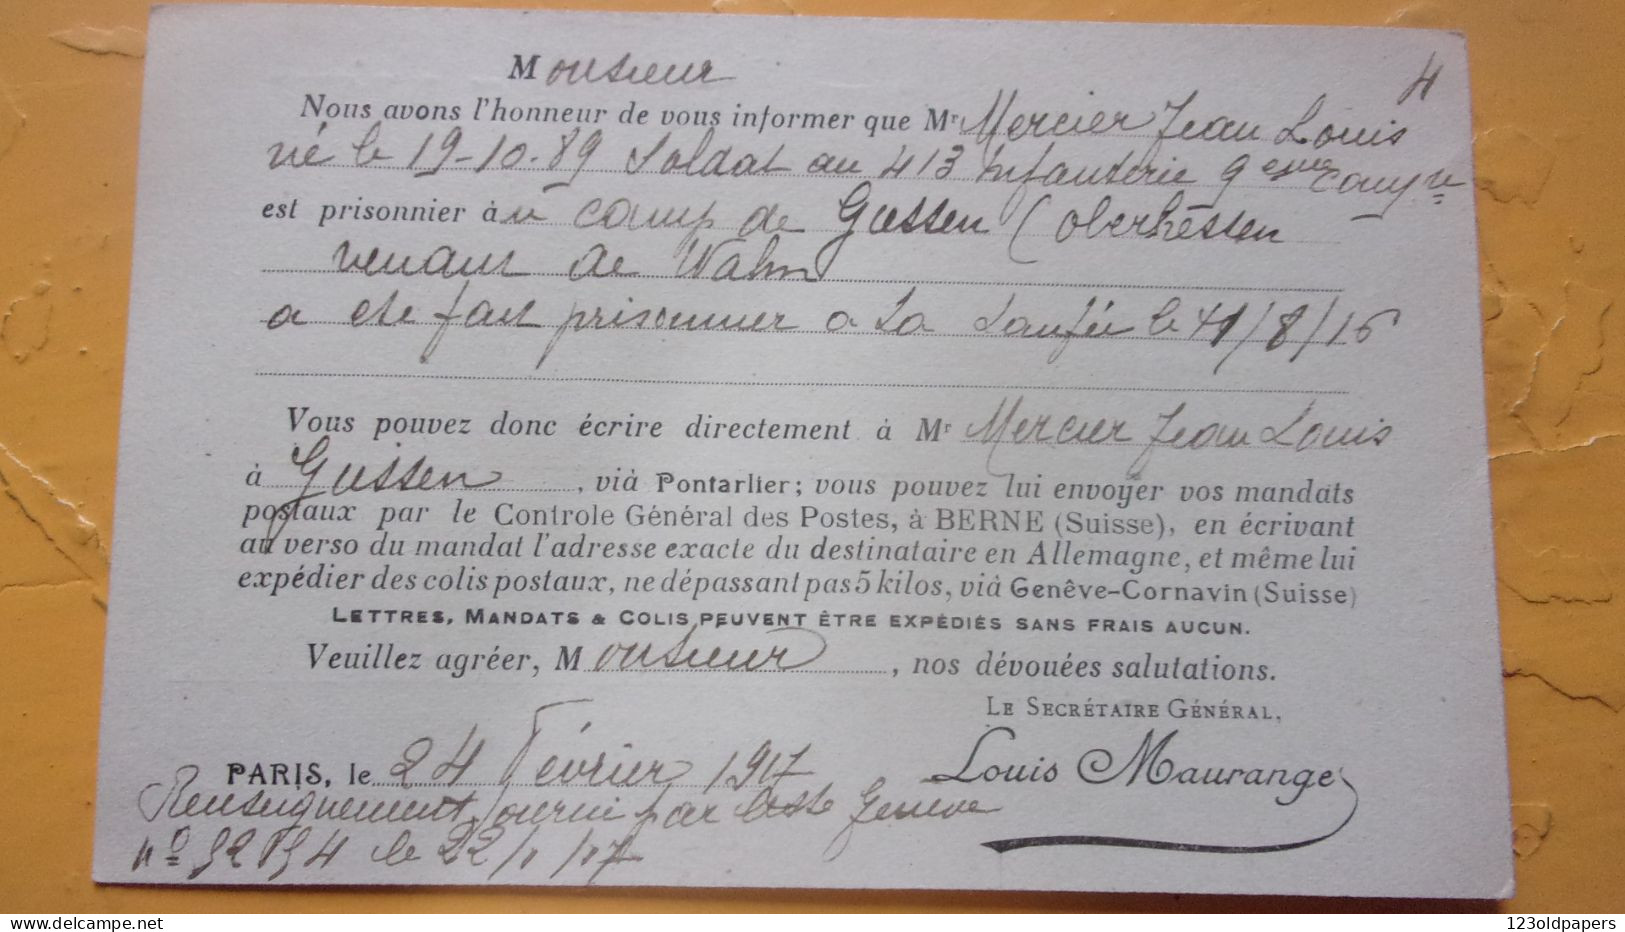 Monsieur
4
Nous avons l'honneur de vous informer que Mr Mercier Jean Louis
né le 19-10-89 Soldat au 413 Infanterie 9eme Comp
est prisonnier àu camp de Giessen (oberhessen
venant de Wahn
a ete fait prisonnier a La Laufée le 1/8/16
Vous pouvez donc écrire directement à Mr Mercier Jean Louis
à Giessen, vià Pontarlier; vous pouvez lui envoyer vos mandats
postaux par le Controle Général des Postes, à BERNE (Suisse), en écrivant
au verso du mandat l'adresse exacte du destinataire en Allemagne, et même lui
expédier des colis postaux, ne dépassant pas 5 kilos, vià Genêve-Cornavin (Suisse)
LETTRES, MANDATS & COLIS PEUVENT ÊTRE EXPÉDIÉS SANS FRAIS AUCUN.
Veuillez agréer, Monsieur, nos dévouées salutations.
LE SECRÉTAIRE GÉNÉRAL,
PARIS, le 24 Février 1917
Louis Maurange
Renseignement fourni par liste Geneve
n° le 22/1/17
123oldpapers